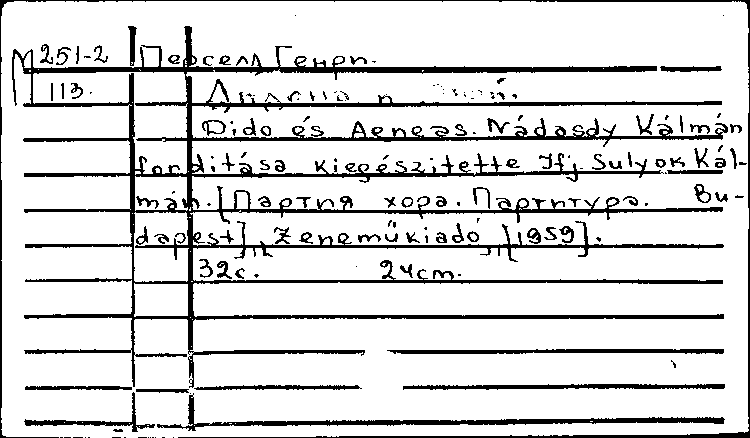 М 251-2 Перселл Генри.
113. Дидона и Эней.
Dido és Aeneas. Nádasdy Kálmán
forditása kiegészitette Ifj Sulyok Kál-
mán. [Партия хора. Партитура. Bu-
dapest], "Zeneműkiadó", [1959].
32с. 24cm.